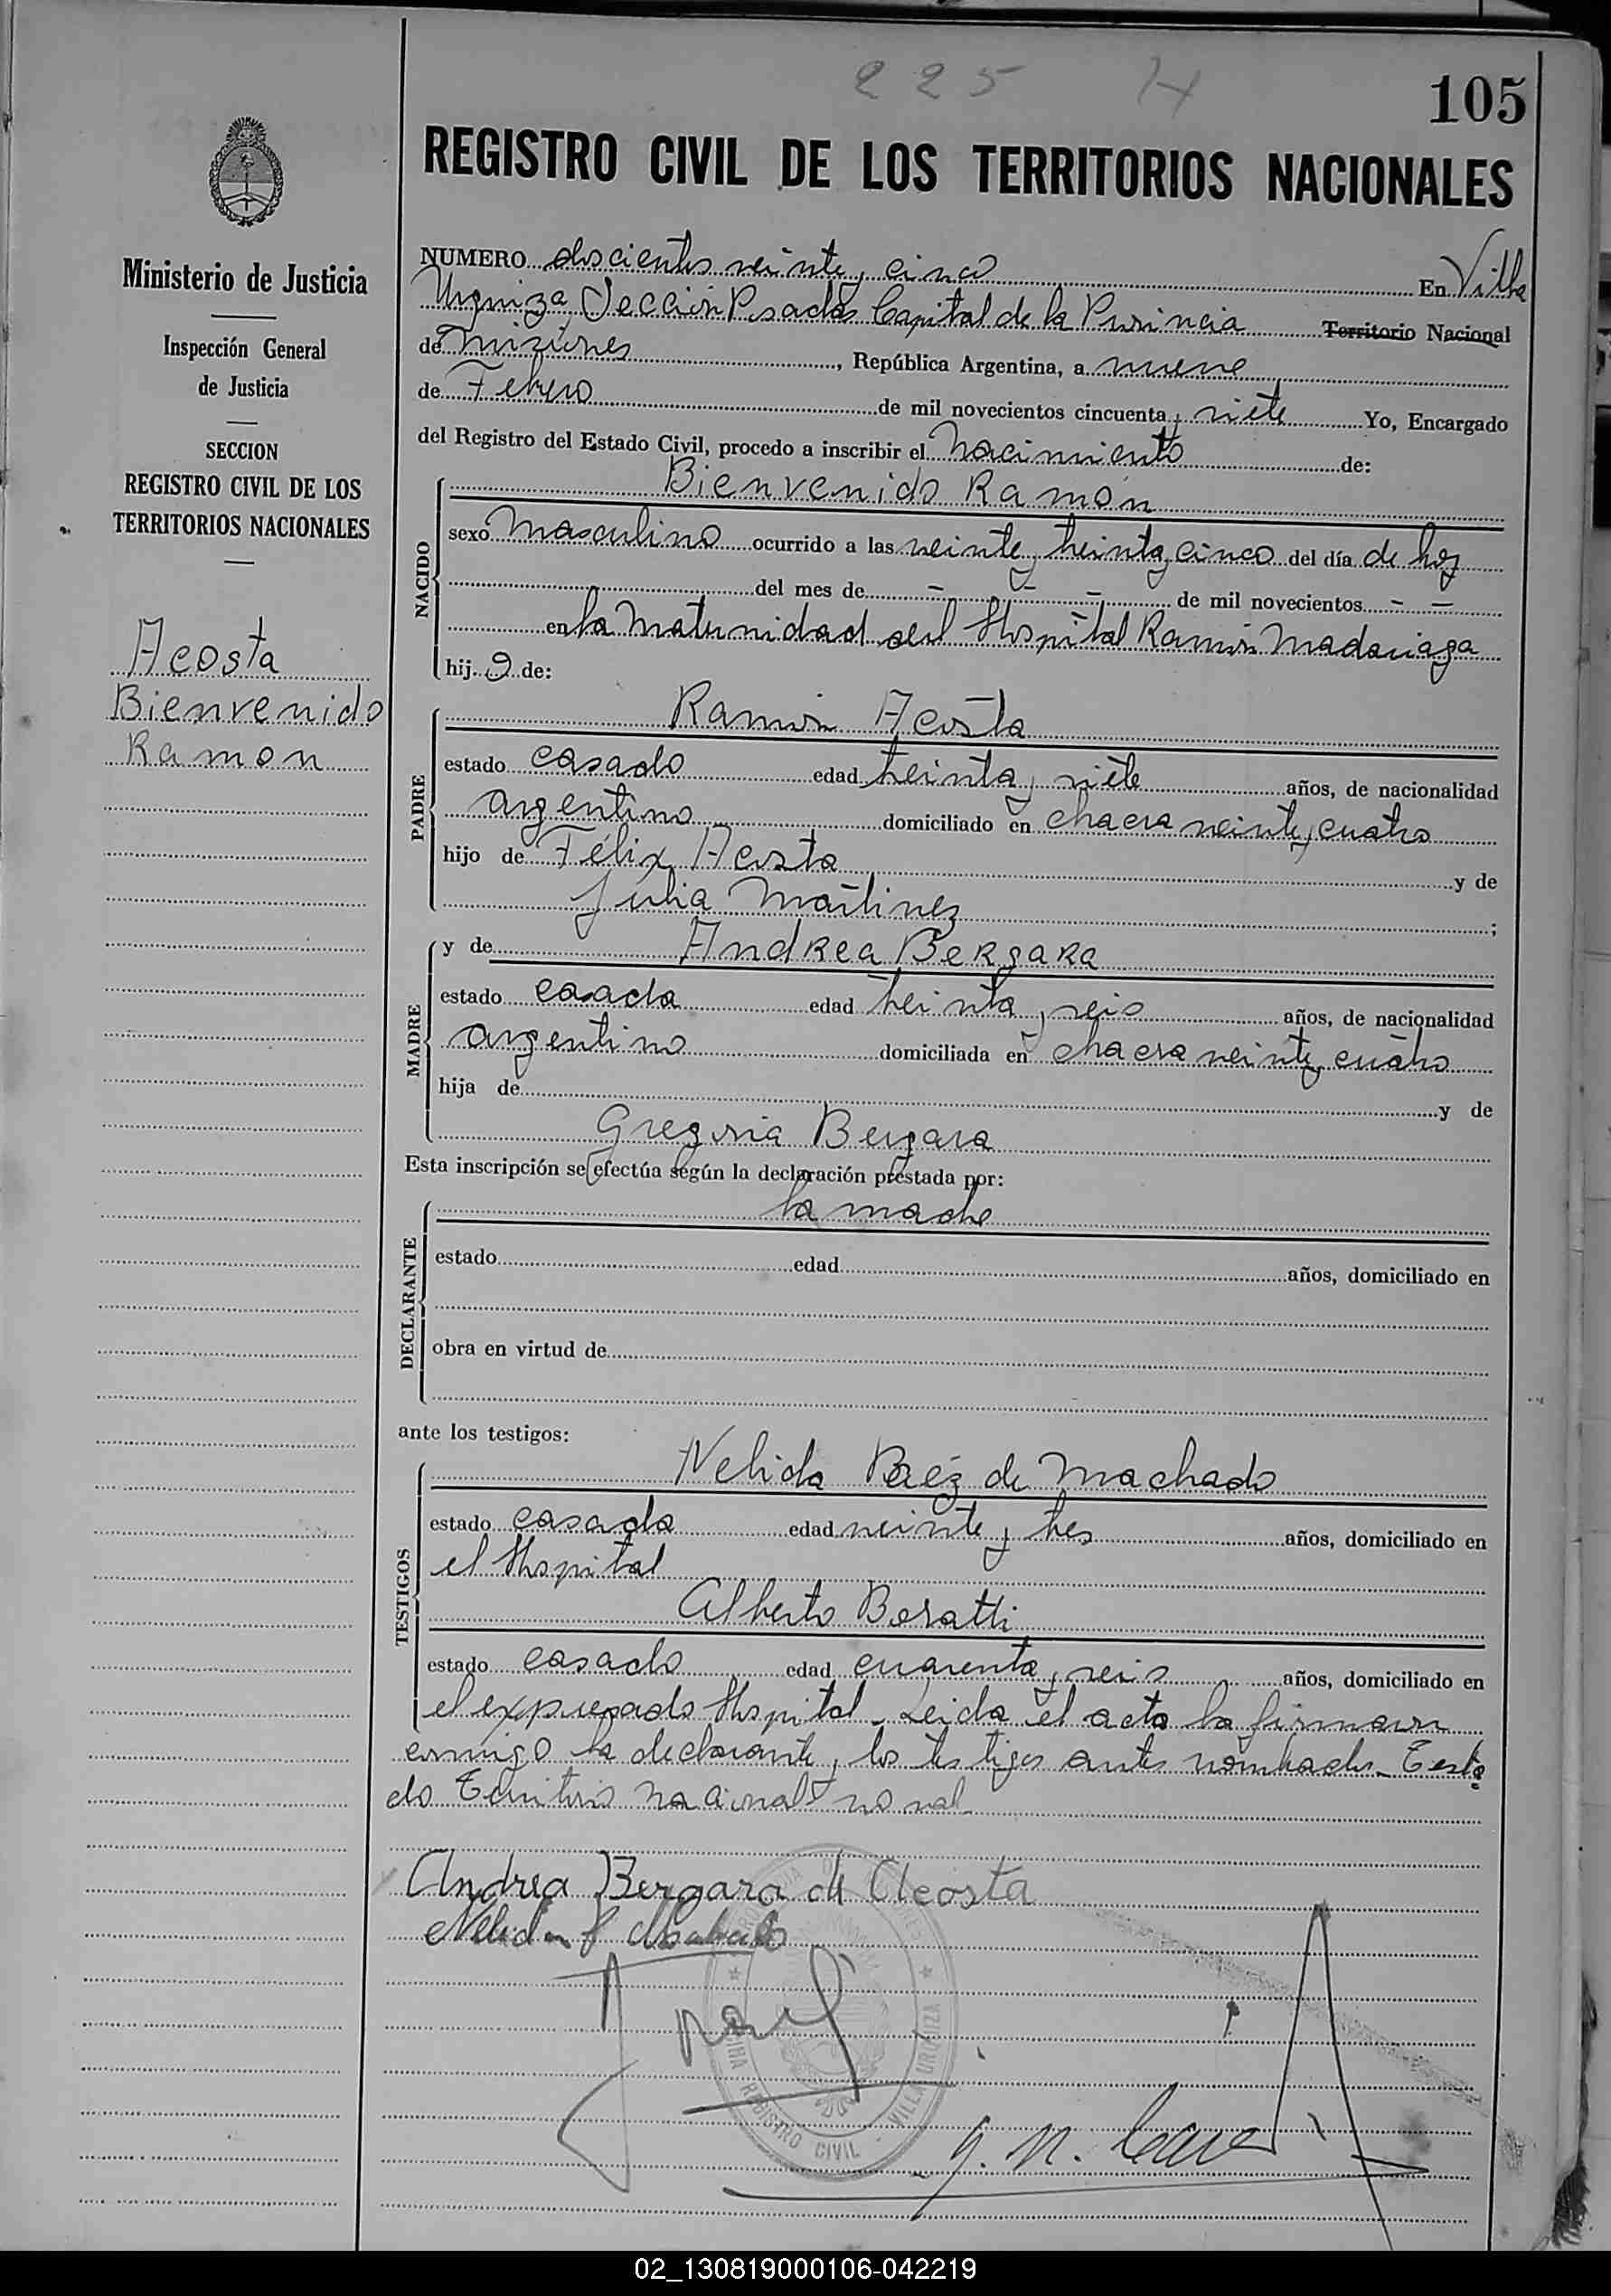 225 H
105
REGISTRO CIVIL DE LOS TERRITORIOS NACIONALES
Ministerio de Justicia
Inspección General
de Justicia
SECCION
REGISTRO CIVIL DE LOS
TERRITORIOS NACIONALES
Acosta
Bienvenido
Ramon
NUMERO doscientos veinte y cinco En Villa
Urquiza, Sección Posadas Capital de la Provincia Territorio Nacional
de Misiones, República Argentina, a nueve
de Febrero de mil novecientos cincuenta y siete Yo, Encargado
del Registro del Estado Civil, procedo a inscribir el Nacimiento de:
NACIDO
Bienvenido Ramón
sexo Masculino ocurrido a las veinte y treinta y cinco del día de hoy
del mes de - - - de mil novecientos - -
en la Maternidad del Hospital Ramón Madariaga
hij o de:
PADRE
Ramón Acosta
estado casado edad treinta y siete años, de nacionalidad
argentino domiciliado en chacra veinte y cuatro
hijo de Félix Acosta y de
Julia Martinez;
MADRE
y de Andrea Bergara
estado casada edad treinta y seis años, de nacionalidad
argentino domiciliada en chacra veinte y cuatro
hija de y de
Gregoria Bergara
Esta inscripción se efectúa según la declaración prestada por:
DECLARANTE
la madre
estado edad años, domiciliado en
obra en virtud de
ante los testigos:
TESTIGOS
Nelida Baéz de Machado
estado casada edad veinte y tres años, domiciliado en
el Hospital
Alberto Boratti
estado casado edad cuarenta y seis años, domiciliado en
el expresado Hospital. Leida el acta la firmaron
conmigo la declarante y los testigos antes nombrados. Testa
do Territorio Nacional no val
Andrea Bergara de Acosta
Nelida Machado
REGISTRO CIVIL - VILLA URQUIZA
02_130819000106-042219